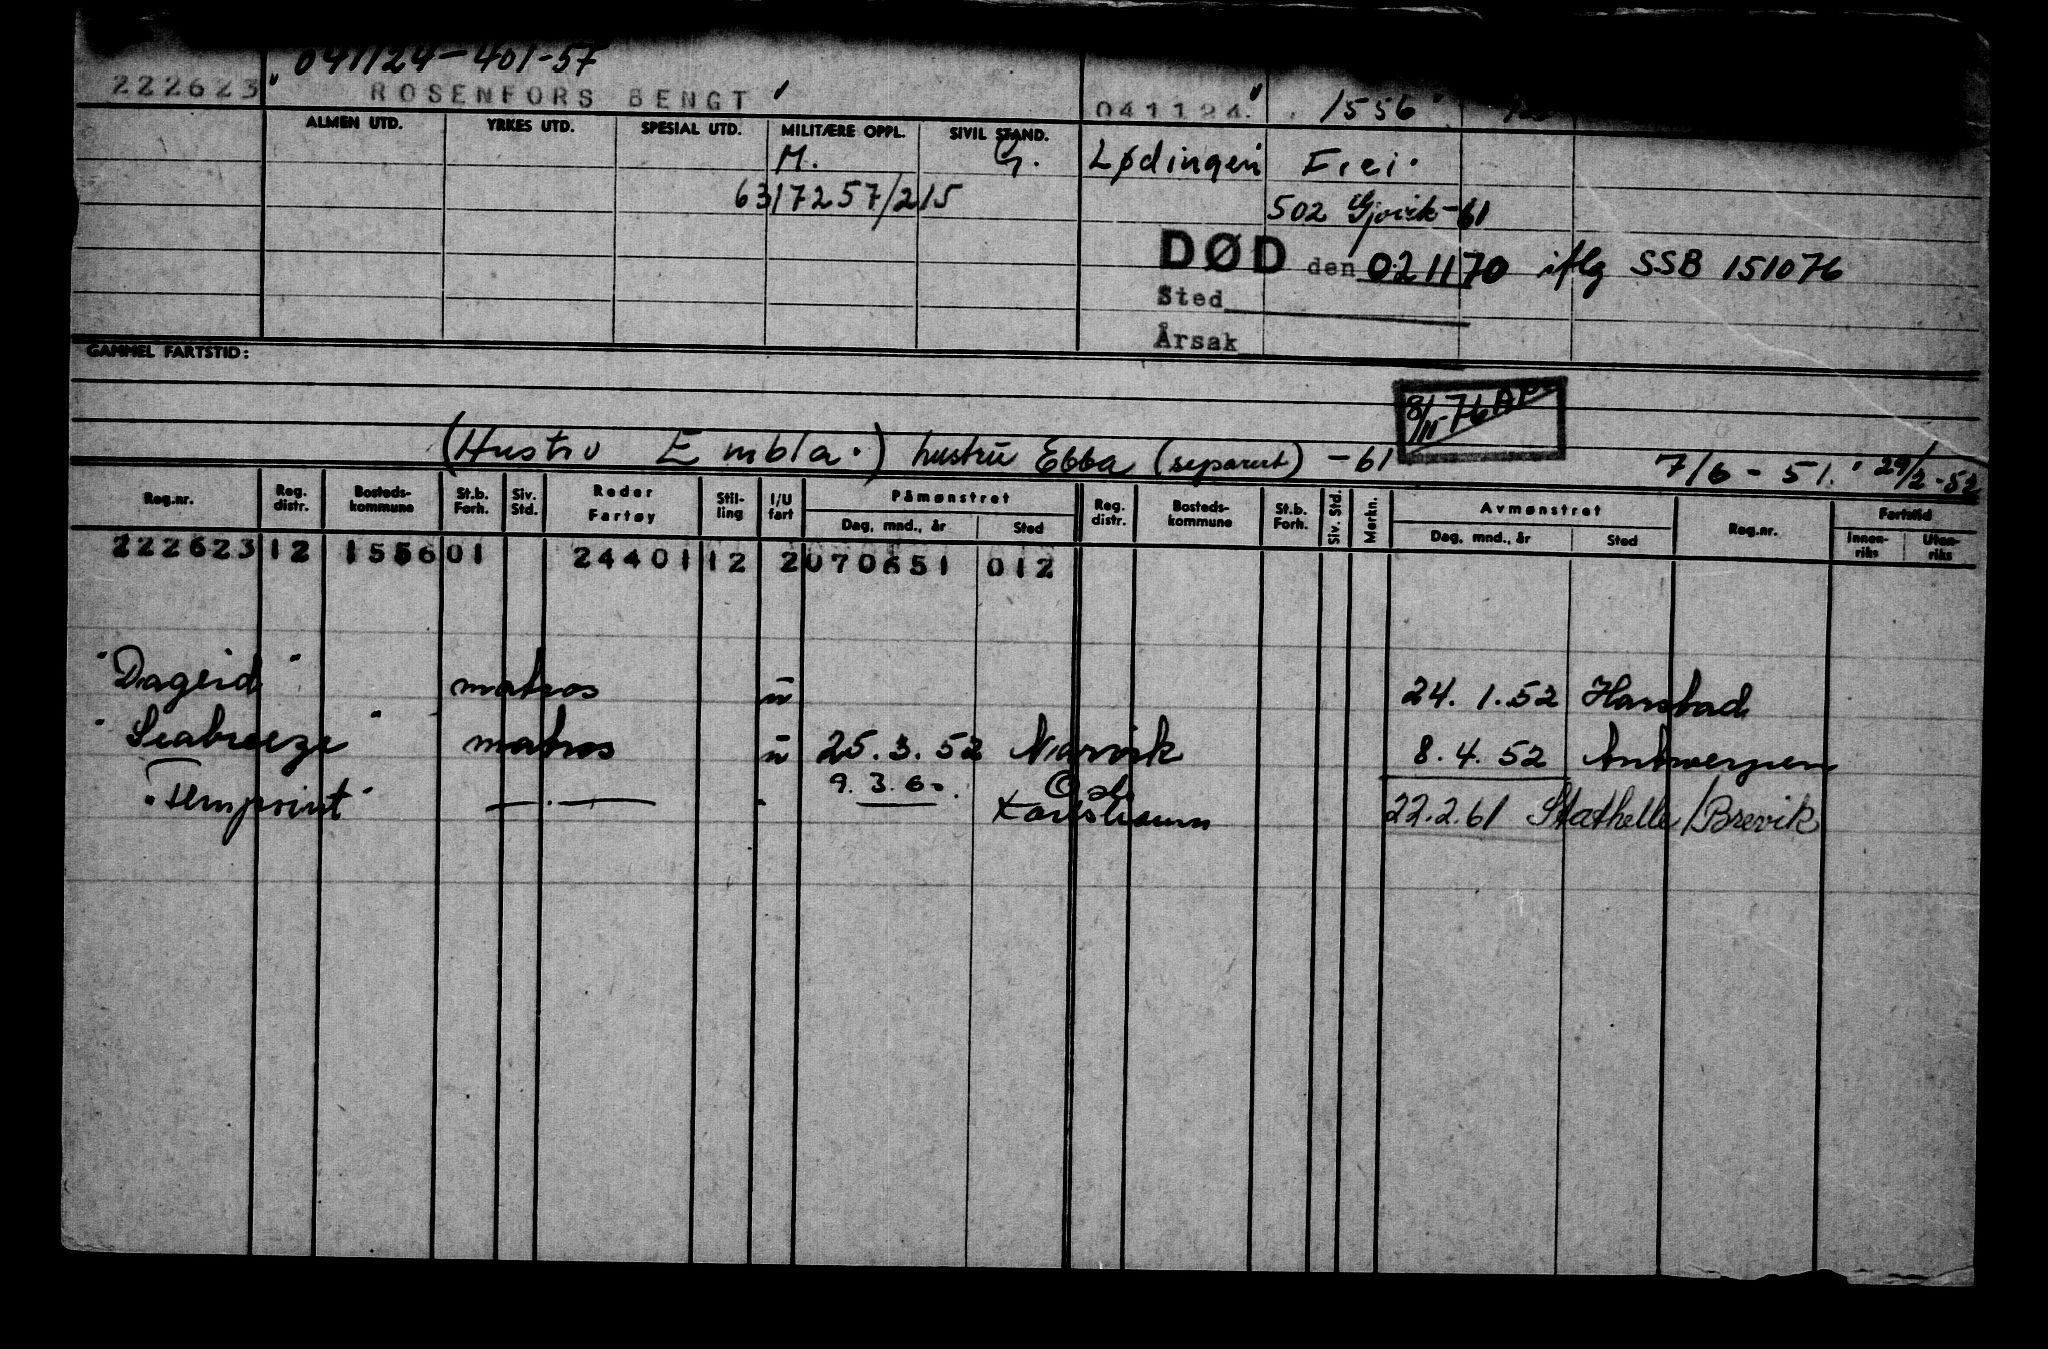 041124-401-57
222623 ROSENFORS BENGT 041124. 1556
ALMEN UTD. YRKES UTD. SPESIAL UTD. MILITÆRE OPPL. SIVIL STAND.
M. G. Lødingen Frei.
6317257/215 502 Gjøvik-61
DØD den 021170 iflg SSB 151076
Sted
Årsak
GAMMEL FARTSTID:
8/11-76
(Hustru Embla.) hustru Ebba (separert) -61 7/6-51. 29/2-52
Reg.nr. Reg. distr. Bosteds-kommune St.b. Forh. Siv. Std. Reder Fartøy Stil-ling I/U fart Påmønstret Dag, mnd., år Sted Reg. distr. Bosteds-kommune St.b. Forh. Siv. Std. Merkn. Avmønstret Dag, mnd., år Sted Reg.nr. Fartstid Innen-riks Uten-riks
222623 12 1556 01 24401 12 2 070651 012
"Dageid" matros u 24.1.52 Harstad
"Seabreeze" matros u 25.3.52 Narvik 8.4.52 Antwerpen
9.3.60. Oslo
"Fernpoint" Karlshamn 22.2.61 Stathelle/Brevik